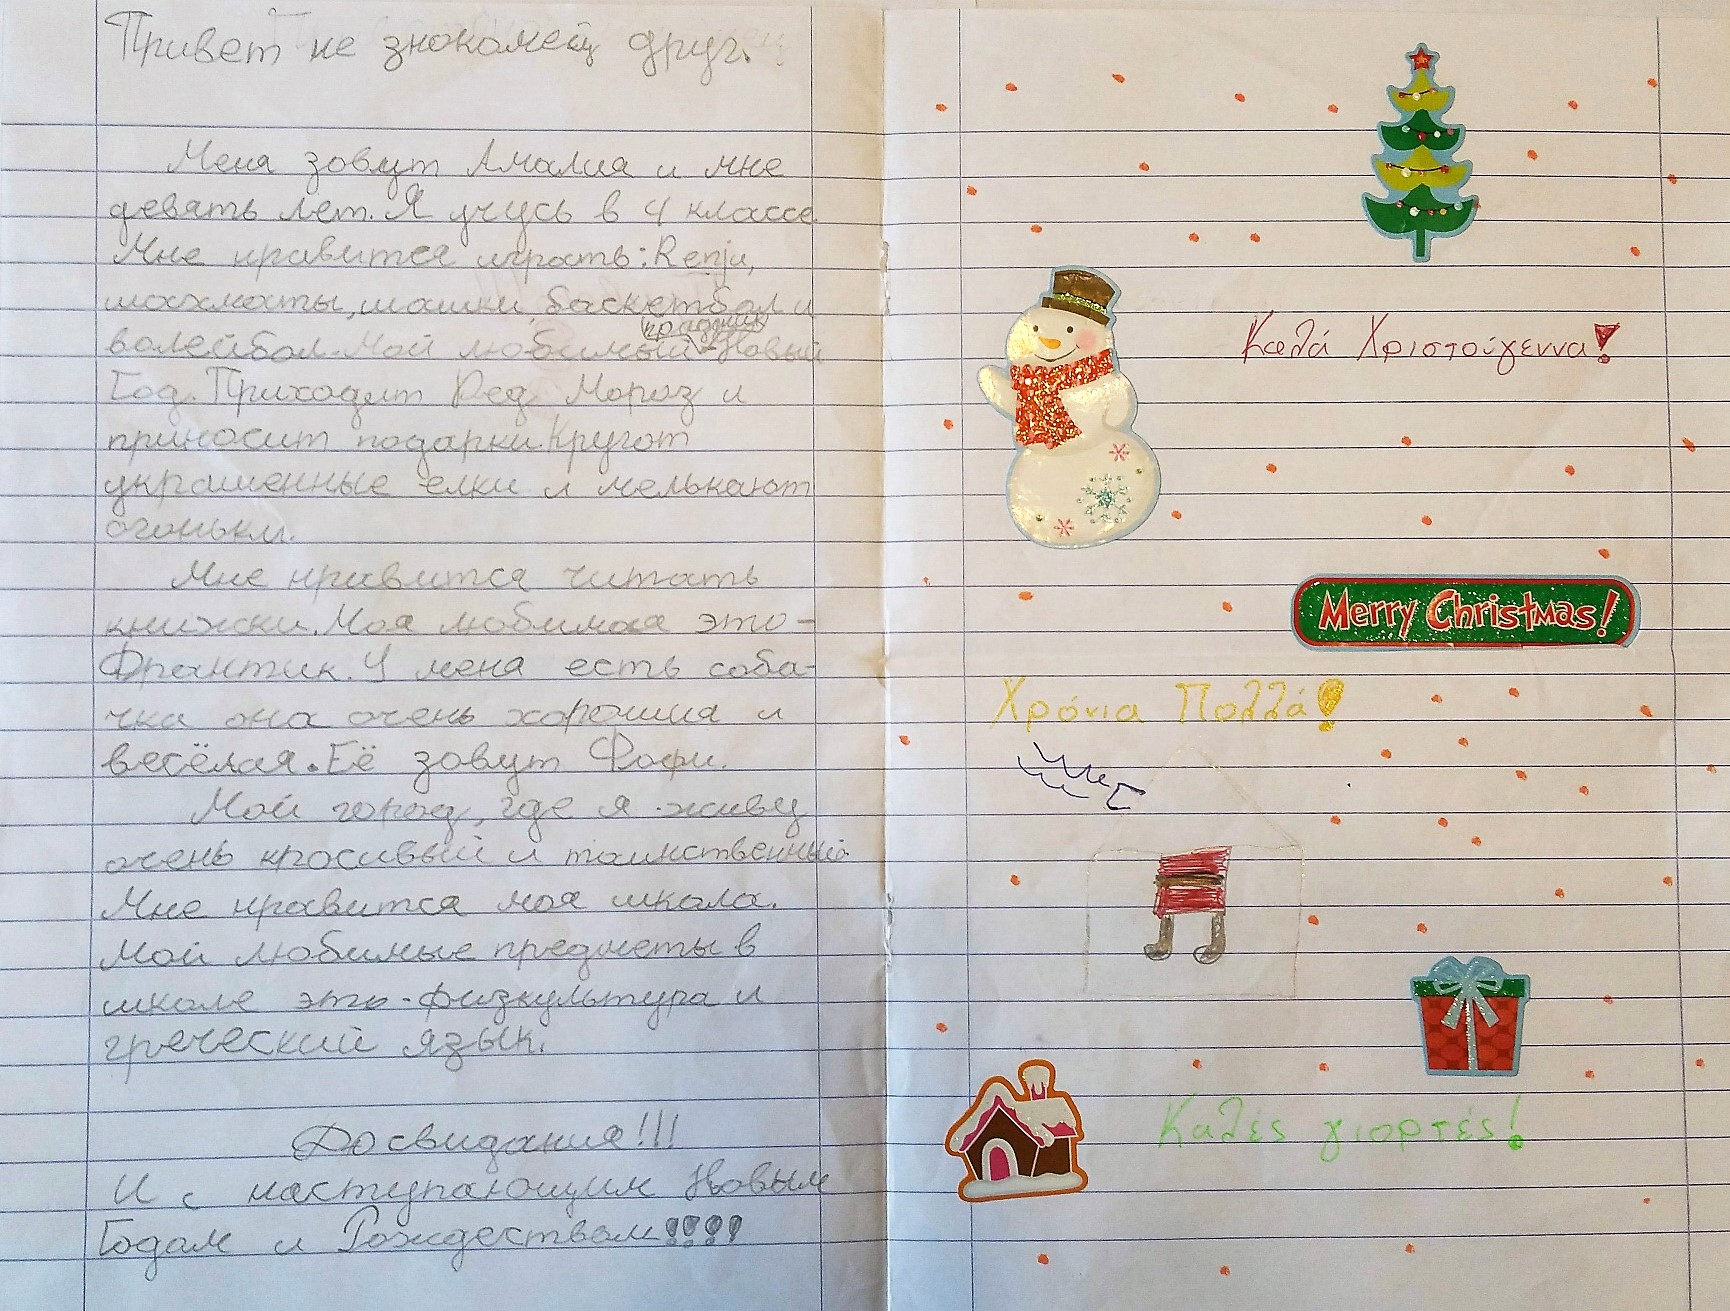 Привет не знокомец друг.
Меня зовут Амалия и мне
девять лет. Я учусь в 4 классе
Мне нравится играть: Renju,
шахматы, шашки, баскетбол и
праздник
волейбол. Мой любимый - Новый
Год. Приходит Дед Мороз и
приносит подарки. Кругот
украшенные елки и мелькают
огоньки.
Мне нравится читать
книжки. Моя любимая это-
Франтик. У меня есть соба-
чка она очень хорошия и
весёлая. Её зовут Фофи.
Мой город, где я живу
очень красивый и таинственный.
Мне нравится моя школа.
Мои любимые предметы в
школе это - физкультура и
греческий язык.
Досвидания!!!
И с наступающим Новым
Годам и Рождествам!!!!
Καλά Χριστούγεννα!
Merry Christmas!
Χρόνια Πολλά!
Καλές γιορτές!